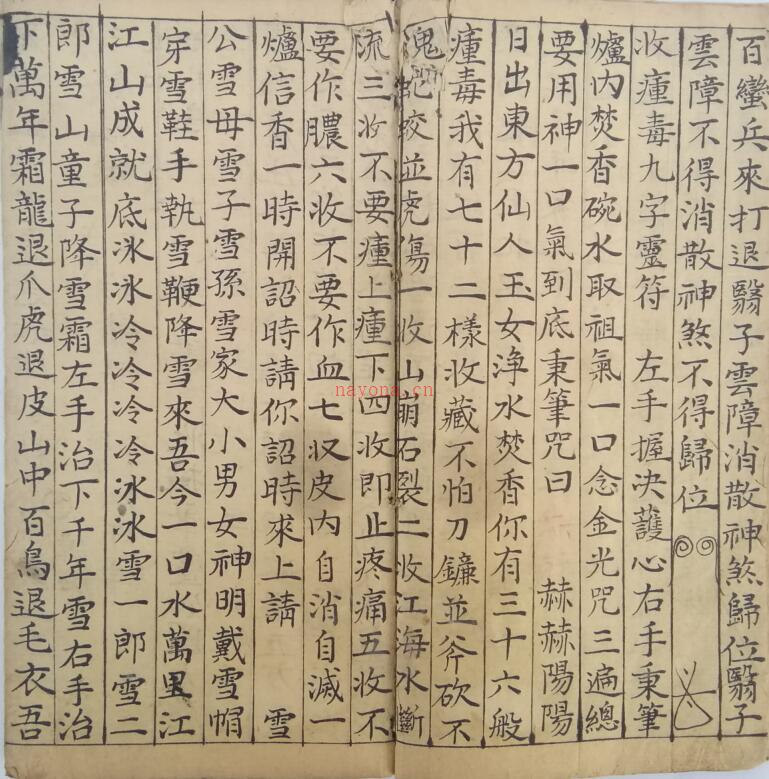 百蠻兵來打退翳子雲障消散神煞歸位翳子
雲障不得消散神煞不得歸位
收瘇毒九字靈符 左手握決護心右手秉筆
爐內焚香碗水取祖氣一口念金光咒三遍總
要用神一口氣到底秉筆咒曰 赫赫陽陽
日出東方仙人玉女淨水焚香你有三十六般
瘇毒我有七十二樣收藏不怕刀鐮並斧砍不
蛇咬並虎傷一收山崩石裂二收江海水斷
流三收不要瘇上瘇下四收即止疼痛五收不
要作膿六收不要作血七収皮內自消自滅一
爐信香一時開詔時請你詔時來上請 雪
公雪母雪子雪孫雪家大小男女神明戴雪帽
穿雪鞋手執雪鞭降雪來吾今一口水萬里江
江山成就底冰冰冷冷冷冷冰冰雪一郎雪二
郎雪山童子降雪霜左手治下千年雪右手治
下萬年霜龍退爪虎退皮山中百鳥退毛衣吾
nayona.cn